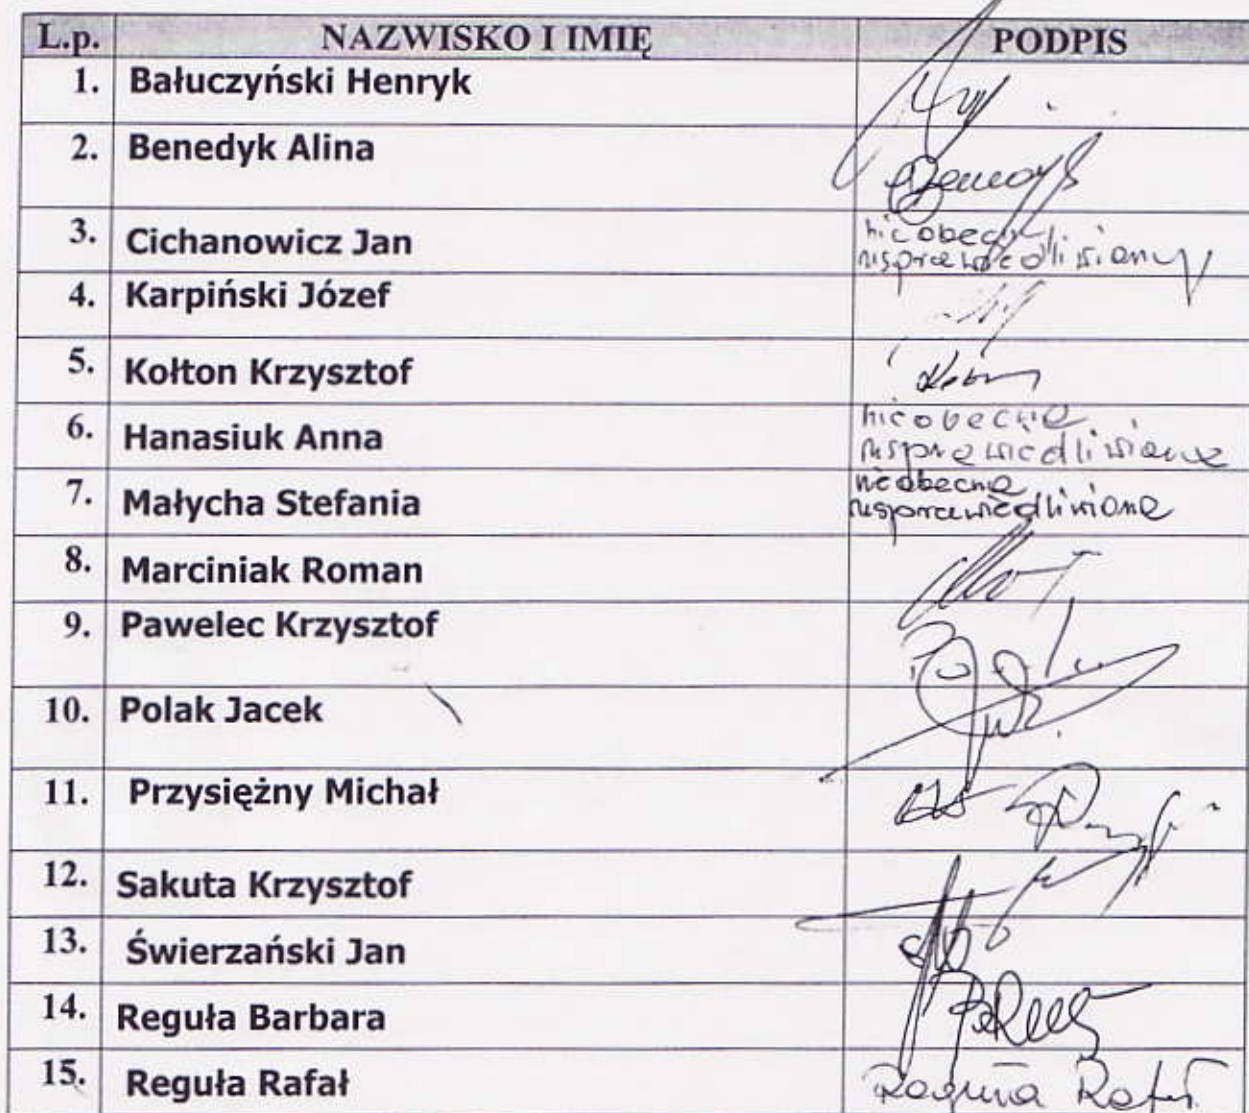 L.p. NAZWISKO I IMIĘ PODPIS
1. Bałuczyński Henryk
2. Benedyk Alina
3. Cichanowicz Jan nieobecny
usprawiedliwiony
4. Karpiński Józef
5. Kołton Krzysztof
6. Hanasiuk Anna nieobecna
usprawiedliwiona
7. Małycha Stefania nieobecna
usprawiedliwiona
8. Marciniak Roman
9. Pawelec Krzysztof
10. Polak Jacek
11. Przysiężny Michał
12. Sakuta Krzysztof
13. Świerzański Jan
14. Reguła Barbara
15. Reguła Rafał Reguła Rafał